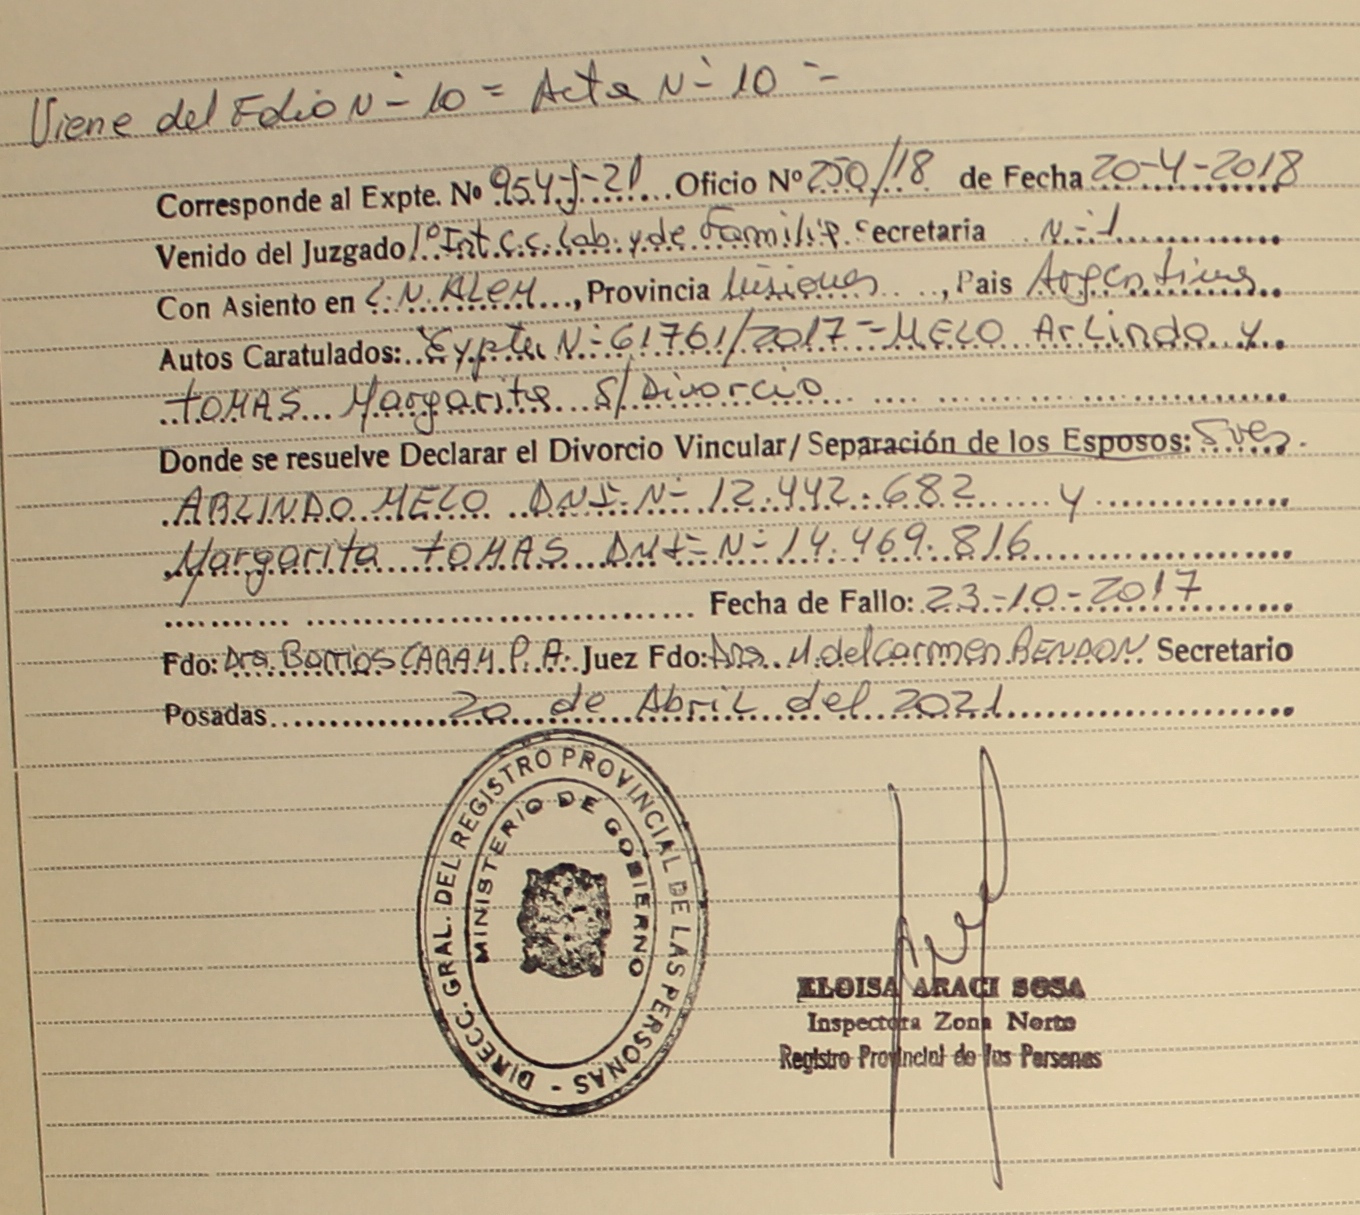 Viene del Folio N- 10 = Acta N- 10 =
Corresponde al Expte. Nº 954-J-21 Oficio Nº 250/18 de Fecha 20-4-2018
Venido del Juzgado 1º Int.C.C. Lab. y de Familia Secretaria N-1
Con Asiento en L.N. ALEM, Provincia Misiones, Pais Argentina
Autos Caratulados: Expte N-61761/2017-MELO ArLindo y
TOMAS Margarita S/Divorcio
Donde se resuelve Declarar el Divorcio Vincular/Separación de los Esposos: Sres.
ARLINDO MELO DNI-N- 12.442.682 y
Margarita TOMAS DNI-N-14.469.816
Fecha de Fallo: 23-10-2017
Fdo: Dra. Barrios P.A. Juez Fdo: Dra. M.delCarmen Secretario
Posadas 20 de Abril del 2021
DIRECC. GRAL. DEL REGISTRO PROVINCIAL DE LAS PERSONAS -
MINISTERIO DE GOBIERNO
ELOISA ARACI SOSA
Inspectora Zona Norte
Registro Provincial de las Personas